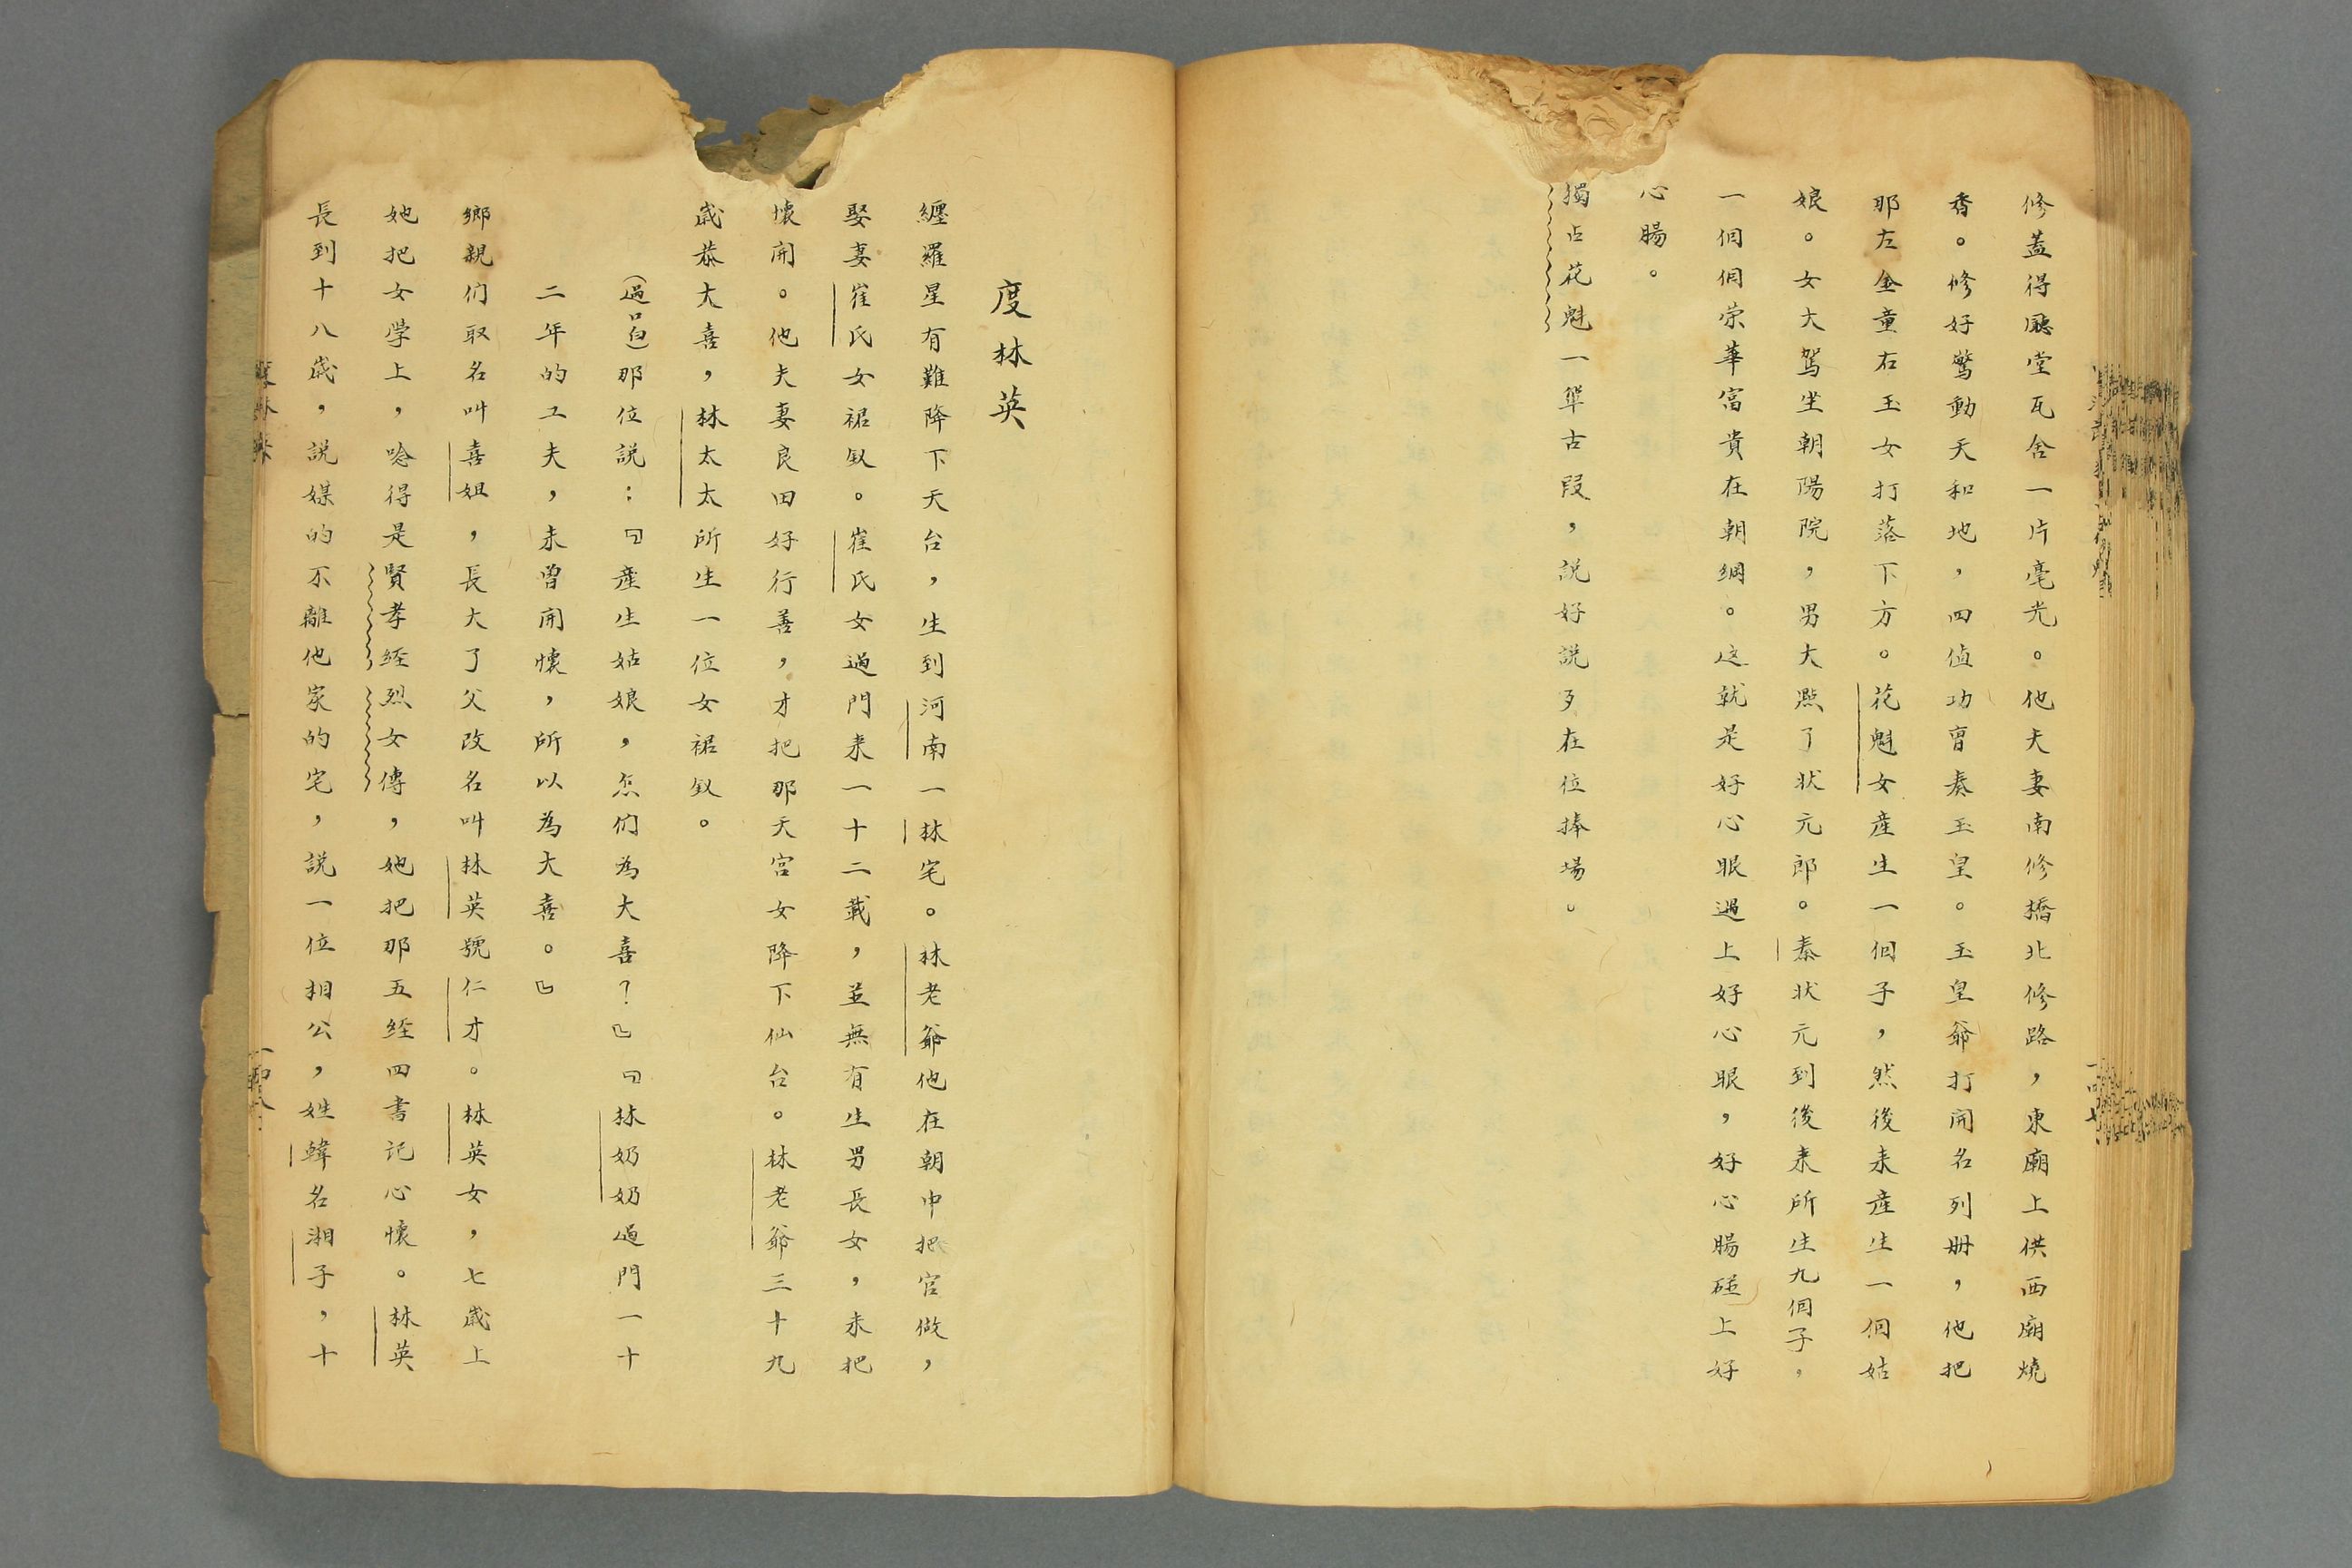 修蓋得廳堂瓦舍一片毫光。他夫妻南修橋北修路，東廟上供西廟燒
香。修好驚動天和地，四值功曹奏玉皇。玉皇爺打開名列册，他把
那左金童右玉女打落下方。花魁女產生一個子，然後来產生一個姑
娘。女大駕坐朝陽院，男大點了状元郎。秦状元到後来所生九個子。
一個個荣華富貴在朝綱。这就是好心眼遇上好心眼，好心腸碰上好
心腸。
獨占花魁一筆古段，説好説歹在位捧場。
度林英
纏羅星有難降下天台，生到河南一林宅。林老爺他在朝中把官做，
娶妻崔氏女裙釵。崔氏女過門来一十二載，並無有生男長女，未把
懷開。他夫妻良田好行善，才把那天宫女降下仙台。林老爺三十九
歲恭大喜，林太太所生一位女裙釵。
（過口白）那位説：『產生姑娘，怎们為大喜？』『林奶奶過門一十
二年的工夫，未曾開懷，所以為大喜。』
鄉親们取名叫喜姐，長大了父改名叫林英號仁才。林英女，七歲上
她把女学上，唸得是賢孝経烈女傳，她把那五経四書記心懷。林英
長到十八歲，説媒的不離他家的宅，説一位相公，姓韓名湘子，十